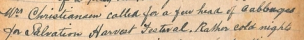 Mrs Christiansen called for a few head of Cabbages
for Salvation Harvest Festival. Rather cold night